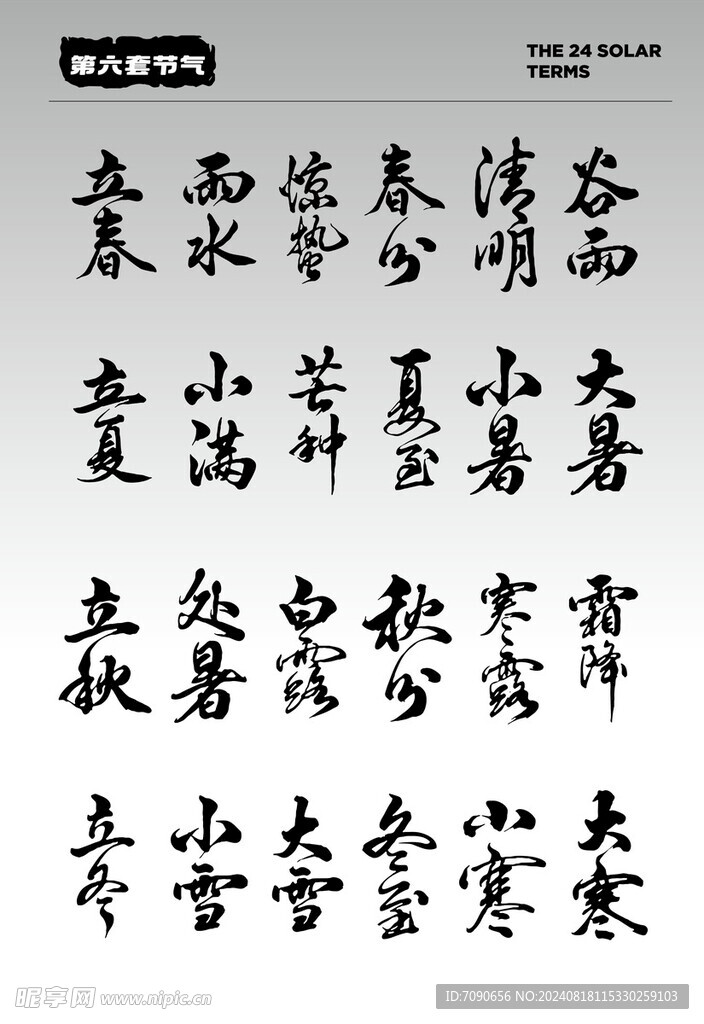 第六套节气
THE 24 SOLAR
TERMS
立春
雨水
惊蛰
春分
清明
谷雨
立夏
小满
芒种
夏至
小暑
大暑
立秋
处暑
白露
秋分
寒露
霜降
立冬
小雪
大雪
冬至
小寒
大寒
昵享网 www.nipic.cn
ID:7090656 NO:20240818115330259103